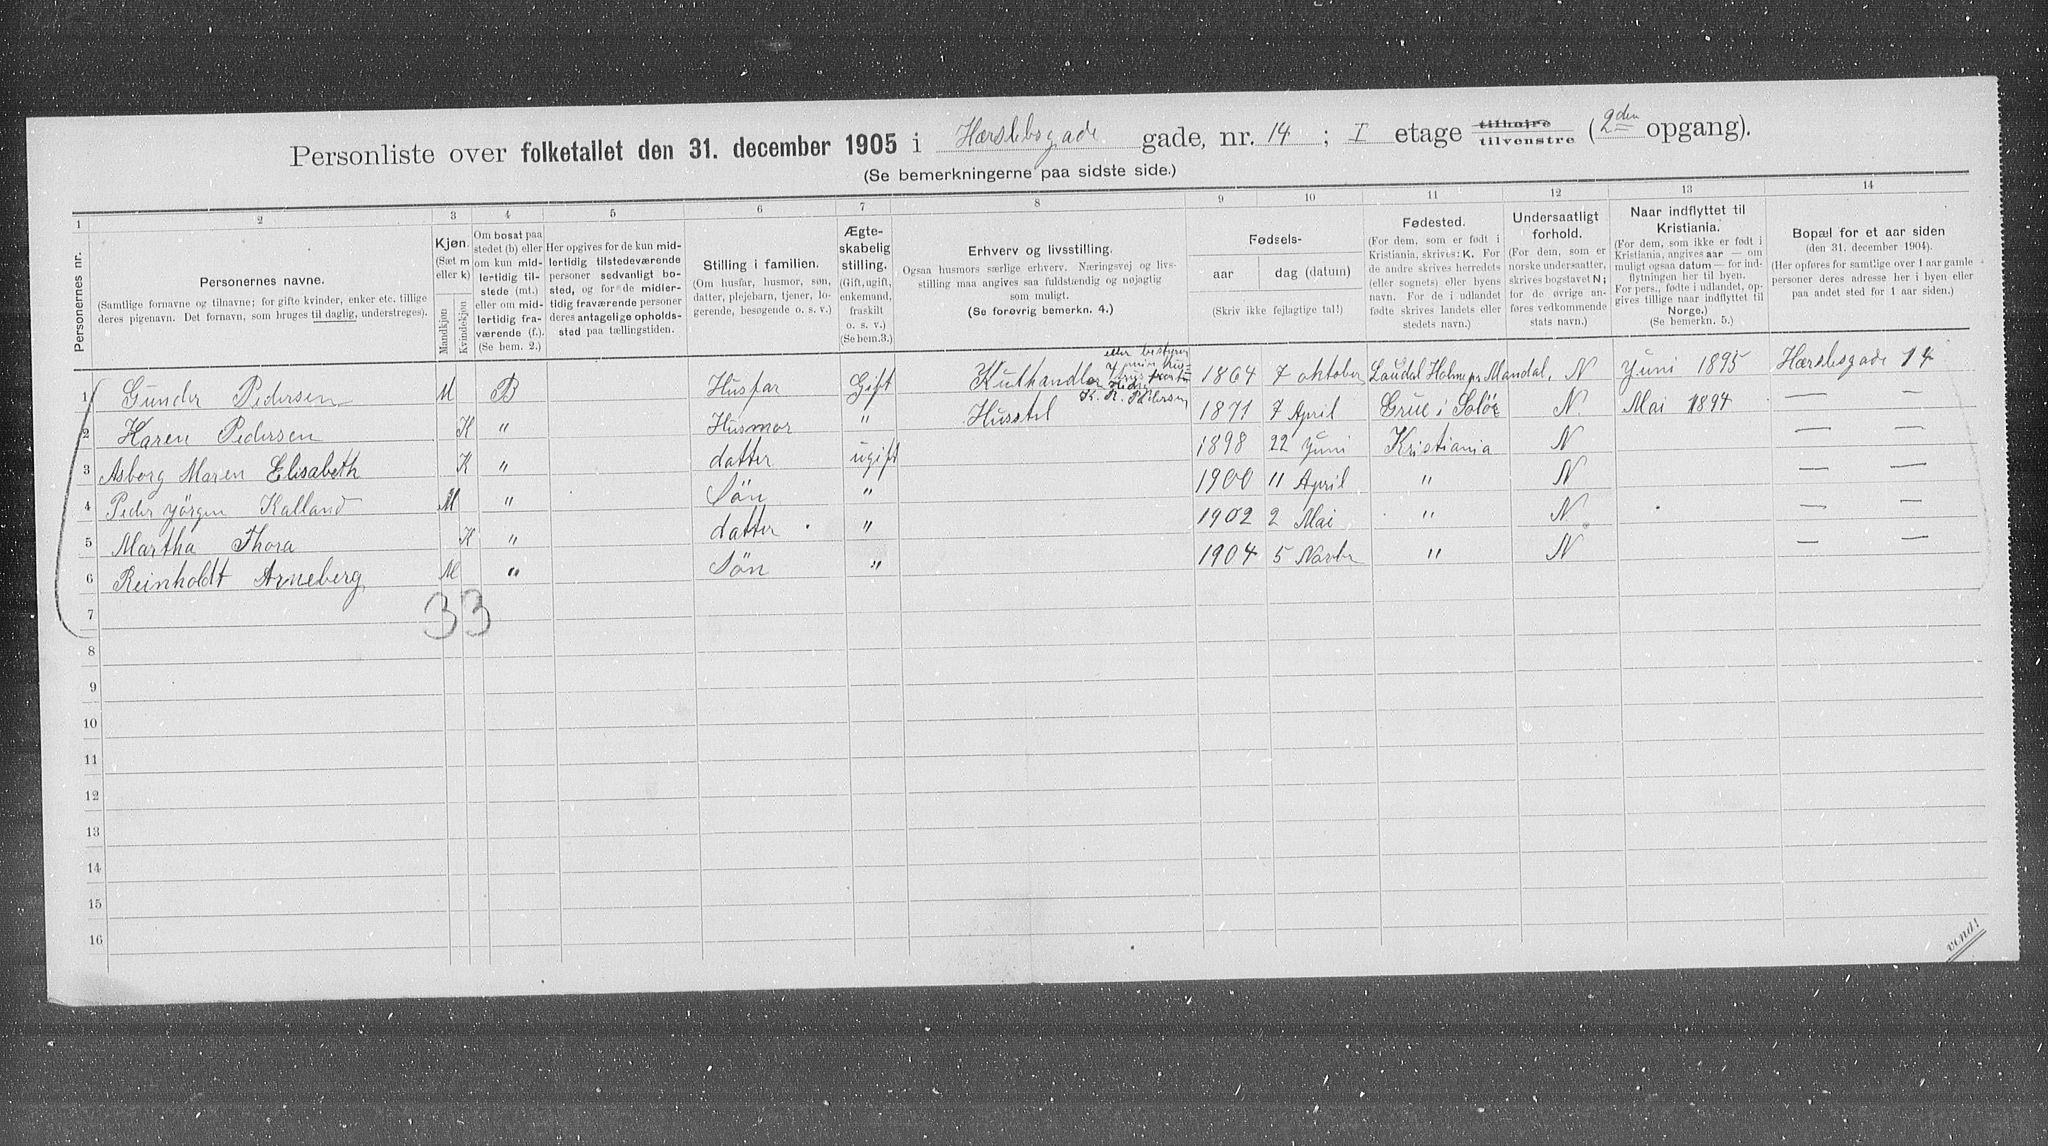 Personliste over folketallet den 31. december 1905 i Hærslebsgade gade, nr. 14 ; I etage tilhøire tilvenstre (2den opgang).
(Se bemerkningerne paa sidste side.)
1 2 3 4 5 6 7 8 9 10 11 12 13 14
Personernes nr.
Personernes navne.
(Samtlige fornavne og tilnavne; for gifte kvinder, enker etc. tillige
deres pigenavn. Det fornavn, som bruges til daglig, understreges).
Kjøn.
(Sæt m
eller k)
Mandkjøn
Kvindekjøn
Om bosat paa
stedet (b) eller
om kun mid-
lertidig til-
stede (mt.)
eller om mid-
lertidig fra-
værende (f.).
(Se bem. 2.)
Her opgives for de kun mid-
lertidig tilstedeværende
personer sedvanligt bo-
sted, og for de midler-
tidig fraværende personer
deres antagelige opholds-
sted paa tællingstiden.
Stilling i familien.
(Om husfar, husmor, søn,
datter, plejebarn, tjener, lo-
gerende, besøgende o. s. v.)
Ægte-
skabelig
stilling.
(Gift, ugift,
enkemand,
fraskilt
o. s. v.)
(Se bem.3.)
Erhverv og livsstilling.
Ogsaa husmors særlige erhverv. Næringsvej og livs-
stilling maa angives saa fuldstændig og nøjagtig
som muligt.
(Se forøvrig bemerkn. 4.)
Fødsels-
aar dag (datum)
(Skriv ikke fejlagtige tal!)
Fødested.
(For dem, som er født i
Kristiania, skrives: K. For
de andre skrives herredets
(eller sognets) eller byens
navn. For de i udlandet
fødte skrives landets eller
stedets navn.)
Undersaatligt
forhold.
(For dem, som er
norske undersaatter,
skrives bogstavet N;
for de øvrige an-
føres vedkommende
stats navn.)
Naar indflyttet til
Kristiania.
(For dem, som ikke er født i
Kristiania, angives aar — om
muligt ogsaa datum — for ind-
flytningen her til byen.
For pers., fødte i udlandet, op-
gives tillige naar indflyttet til
Norge.)
(Se bemerkn. 5.)
Bopæl for et aar siden
(den 31. december 1904).
(Her opføres for samtlige over 1 aar gamle
personer deres adresse her i byen eller
paa andet sted for 1 aar siden.)
eller bestyrer
1 Gunder Pedersen M B Husfar Gift Kulhandler 1864 7 oktober Laudal Holme pr Mandal, N Juni 1895 Hærslebsgade 14
K. Pedersen
2 Karen Pedersen K " Husmor " Husstel 1871 7 April Grue i Solør N Mai 1894 — —
3 Asborg Maren Elisabeth K " datter ugift 1898 22 Juni Kristiania N — —
4 Peder Jørgen Kalland M " Søn " 1900 11 April " N — —
5 Martha Thora K " datter " 1902 2 Mai " N — —
6 Reinholdt Arneberg M " Søn " 1904 5 Novbr " N — —
7 33
8
9
10
11
12
13
14
15
16
vend!